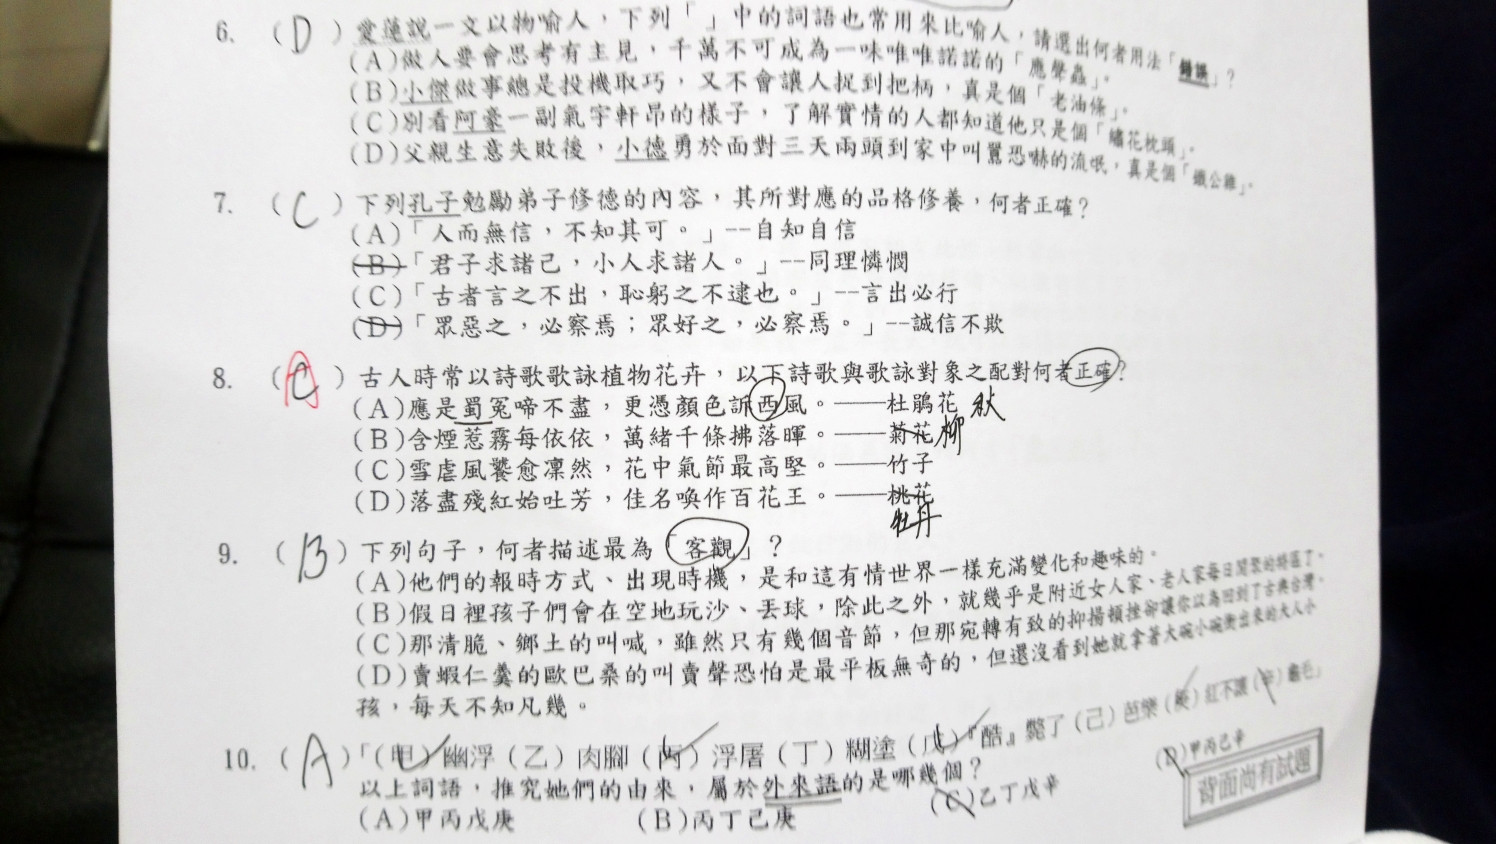 6. (D) 愛蓮說一文以物喻人，下列「」中的詞語也常用來比喻人，請選出何者用法「錯誤」？
(A)做人要會思考有主見，千萬不可成為一味唯唯諾諾的「應聲蟲」。
(B)小傑做事總是投機取巧，又不會讓人捉到把柄，真是個「老油條」。
(C)別看阿豪一副氣宇軒昂的樣子，了解實情的人都知道他只是個「繡花枕頭」。
(D)父親生意失敗後，小德勇於面對三天兩頭到家中叫囂恐嚇的流氓，真是個「鐵公雞」。
7. (C) 下列孔子勉勵弟子修德的內容，其所對應的品格修養，何者正確？
(A)「人而無信，不知其可。」--自知自信
(B)「君子求諸己，小人求諸人。」--同理憐憫
(C)「古者言之不出，恥躬之不逮也。」--言出必行
(D)「眾惡之，必察焉；眾好之，必察焉。」--誠信不欺
8. (A) 古人時常以詩歌歌詠植物花卉，以下詩歌與歌詠對象之配對何者正確？
(A)應是蜀冤啼不盡，更憑顏色訴西風。——杜鵑花 秋
(B)含煙惹霧每依依，萬緒千條拂落暉。——菊花 柳
(C)雪虐風饕愈凜然，花中氣節最高堅。——竹子
(D)落盡殘紅始吐芳，佳名喚作百花王。——桃花
牡丹
9. (B) 下列句子，何者描述最為「客觀」？
(A)他們的報時方式、出現時機，是和這有情世界一樣充滿變化和趣味的。
(B)假日裡孩子們會在空地玩沙、丟球，除此之外，就幾乎是附近女人家、老人家每日閒聚的特區了。
(C)那清脆、鄉土的叫喊，雖然只有幾個音節，但那宛轉有致的抑揚頓挫卻讓你以為回到了古典台灣。
(D)賣蝦仁羹的歐巴桑的叫賣聲恐怕是最平板無奇的，但還沒看到她就拿著大碗小碗衝出來的大人小
孩，每天不知凡幾。
10. (A)「(甲)幽浮(乙)肉腳(丙)浮屠(丁)糊塗(戊)『酷』斃了(己)芭樂(庚)紅不讓(辛)龜毛」
以上詞語，推究她們的由來，屬於外來語的是哪幾個？
(A)甲丙戊庚 (B)丙丁己庚 (C)乙丁戊辛 (D)甲丙己辛
背面尚有試題